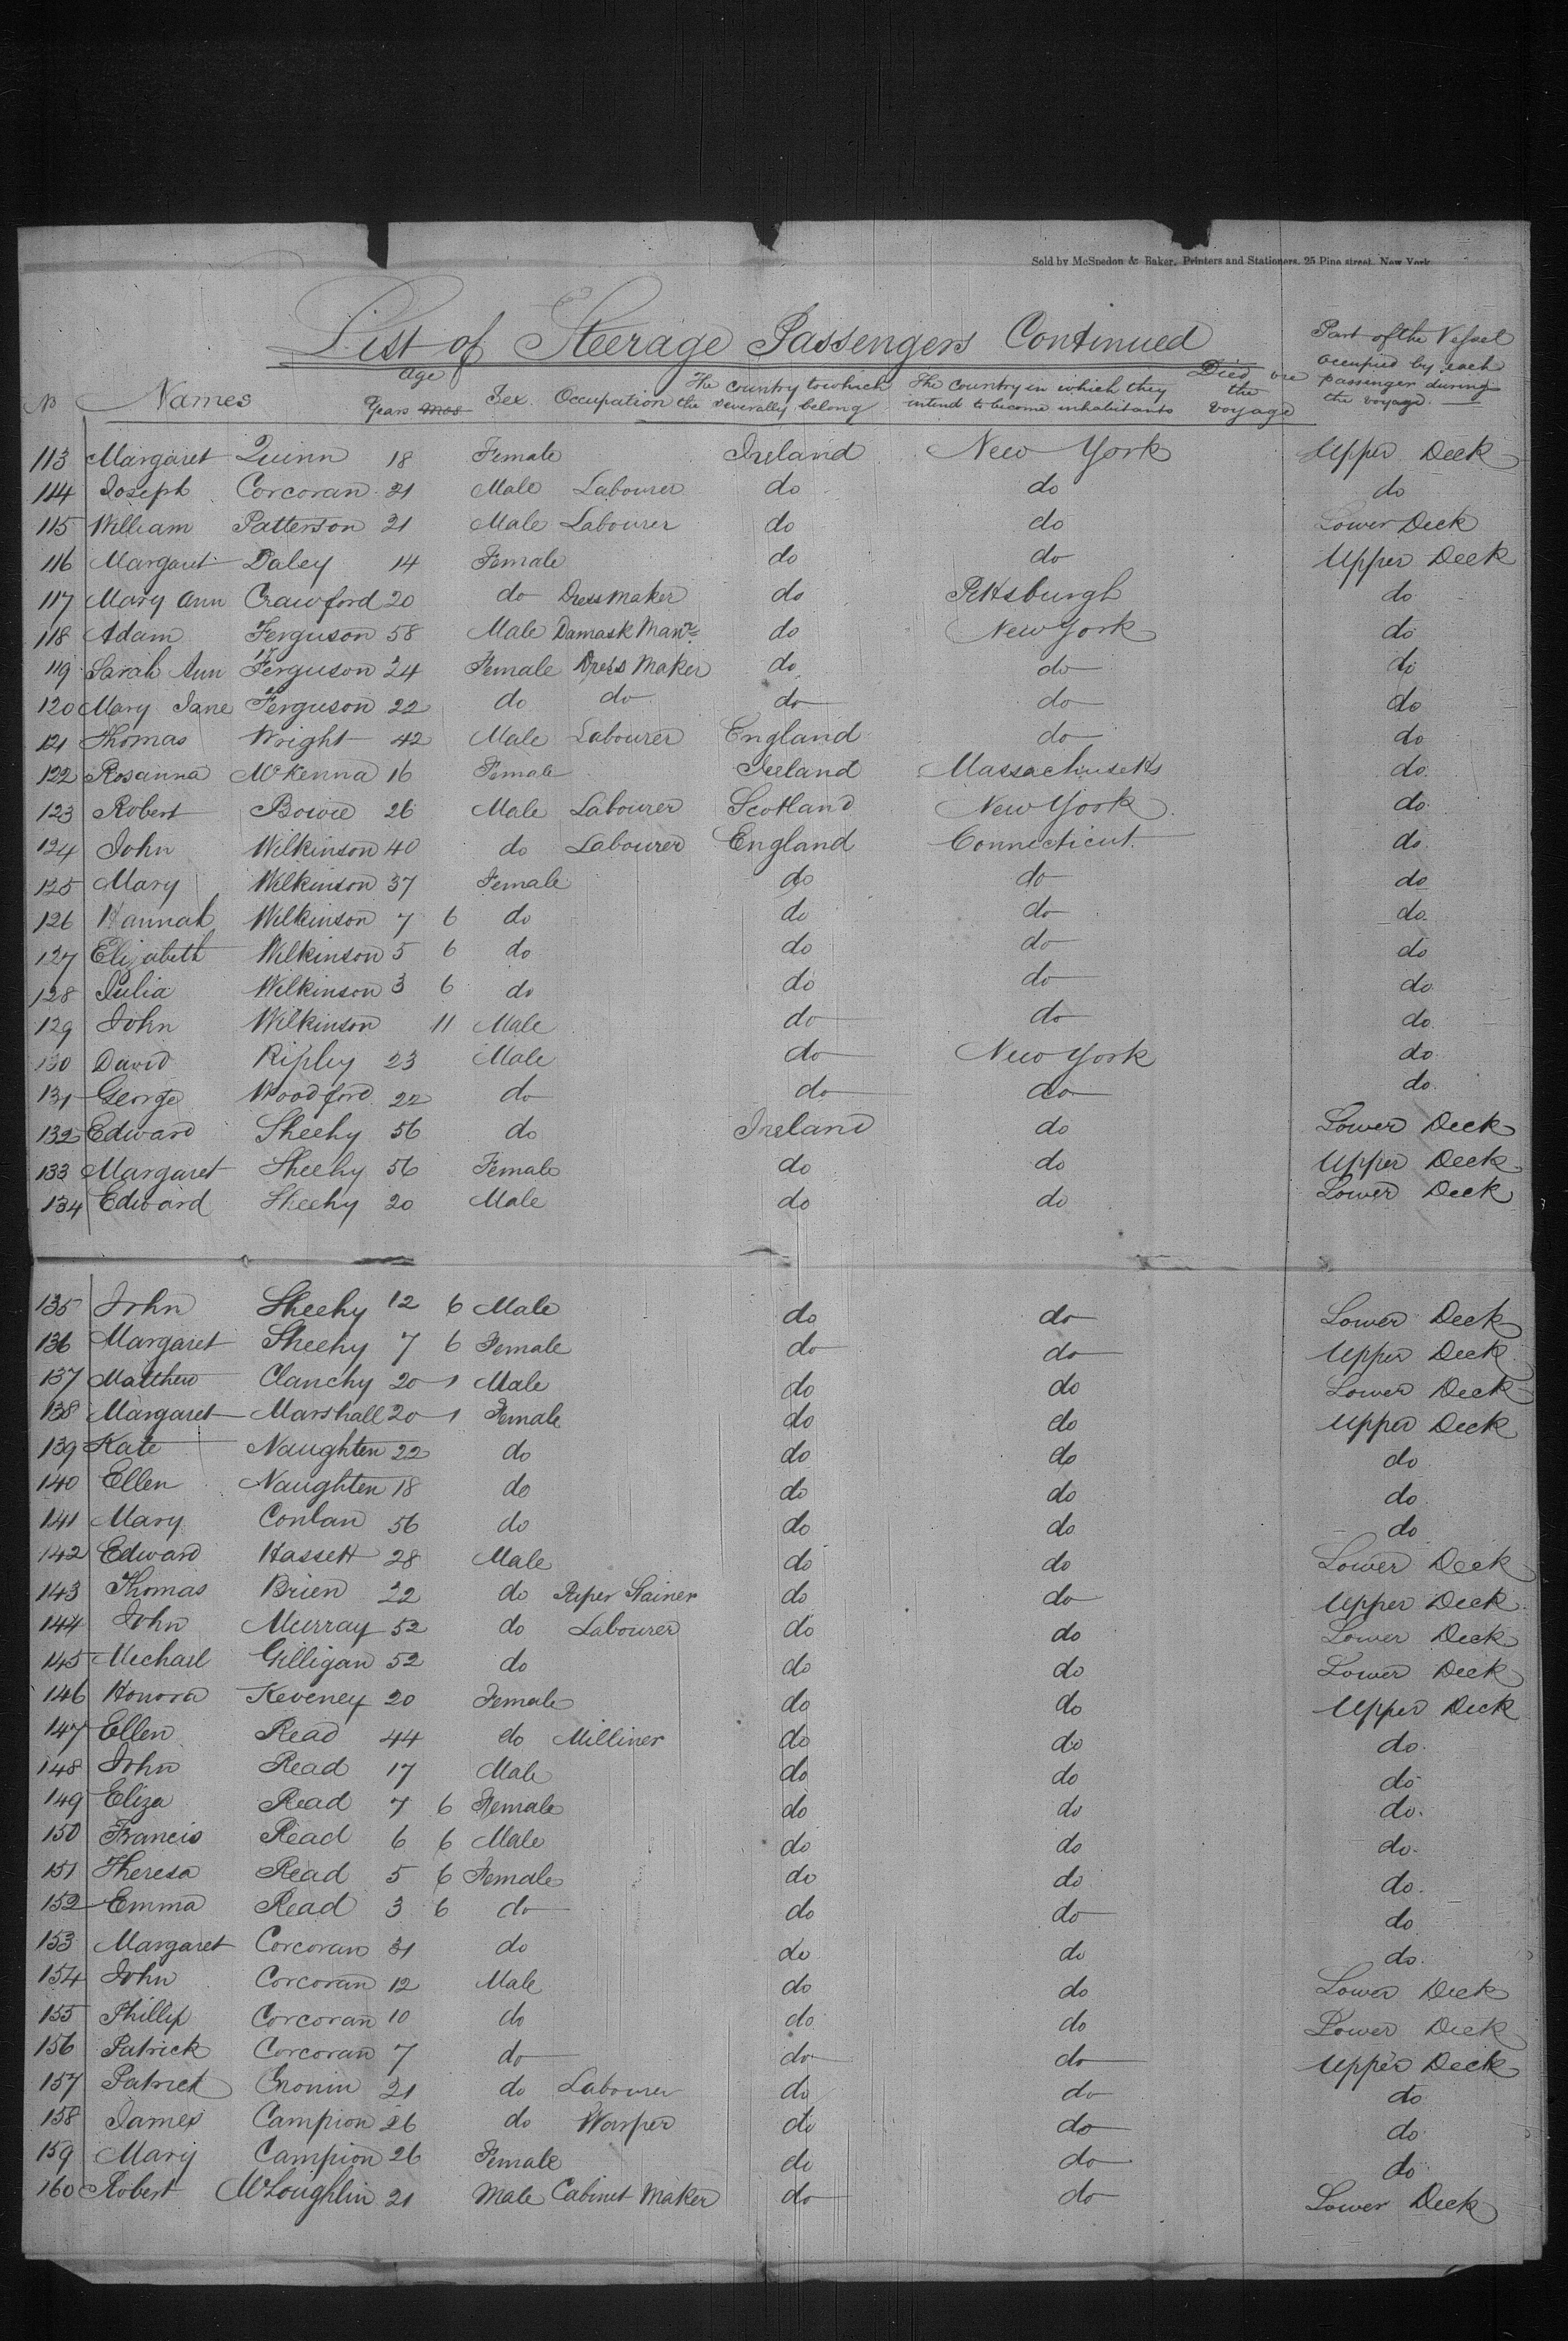 Sold by McSpedon & Baker, Printers and Stationers, 25 Pine street, New York
List of Steerage Passengers Continued
No Names Age Years Mos Sex Occupation The country to which the severally belong The country in which they intend to become inhabitants Died on the voyage Part of the Vessel occupied by each passenger during the voyage
113 Margaret Quinn 18 Female Ireland New York Upper Deck
114 Joseph Corcoran 31 Male Labourer do do do
115 William Patterson 21 Male Labourer do do Lower Deck
116 Margaret Daley 14 Female do do Upper Deck
117 Mary Ann Crawford 20 do Dress Maker do Pittsburgh do
118 Adam Ferguson 58 Male Damask Manr do New York do
119 Sarah Ann Ferguson 24 Female Dress Maker do do do
120 Mary Jane Ferguson 22 do do do do do
121 Thomas Wright 42 Male Labourer England do do
122 Rosanna McKenna 16 Female Ireland Massachusetts do
123 Robert Bowie 26 Male Labourer Scotland New York do
124 John Wilkinson 40 do Labourer England Connecticut do
125 Mary Wilkinson 37 Female do do do
126 Hannah Wilkinson 7 6 do do do do
127 Elizabeth Wilkinson 5 6 do do do do
128 Julia Wilkinson 3 6 do do do do
129 John Wilkinson 11 Male do do do
130 David Ripley 23 Male do New York do
131 George Woodford 22 do do do do
132 Edward Sheehy 56 do Ireland do Lower Deck
133 Margaret Sheehy 56 Female do do Upper Deck
134 Edward Sheehy 20 Male do do Lower Deck
135 John Sheehy 12 6 Male do do Lower Deck
136 Margaret Sheehy 7 6 Female do do Upper Deck
137 Matthew Clanchy 20 1 Male do do Lower Deck
138 Margaret Marshall 20 1 Female do do Upper Deck
139 Kate Naughten 22 do do do do
140 Ellen Naughten 18 do do do do
141 Mary Conlan 56 do do do do
142 Edward Hassett 28 Male do do Lower Deck
143 Thomas Brien 22 do Paper Stainer do do Upper Deck
144 John Murray 52 do Labourer do do Lower Deck
145 Michael Gilligan 52 do do do Lower Deck
146 Honora Keveney 20 Female do do Upper Deck
147 Ellen Read 44 do Milliner do do do
148 John Read 17 Male do do do
149 Eliza Read 7 6 Female do do do
150 Francis Read 6 6 Male do do do
151 Theresa Read 5 6 Female do do do
152 Emma Read 3 6 do do do do
153 Margaret Corcoran 31 do do do do
154 John Corcoran 12 Male do do Lower Deck
155 Phillip Corcoran 10 do do do Lower Deck
156 Patrick Corcoran 7 do do do Upper Deck
157 Patrick Cronin 21 do Labourer do do do
158 James Campion 26 do Warper do do do
159 Mary Campion 26 Female do do do
160 Robert McLoughlin 21 Male Cabinet Maker do do Lower Deck